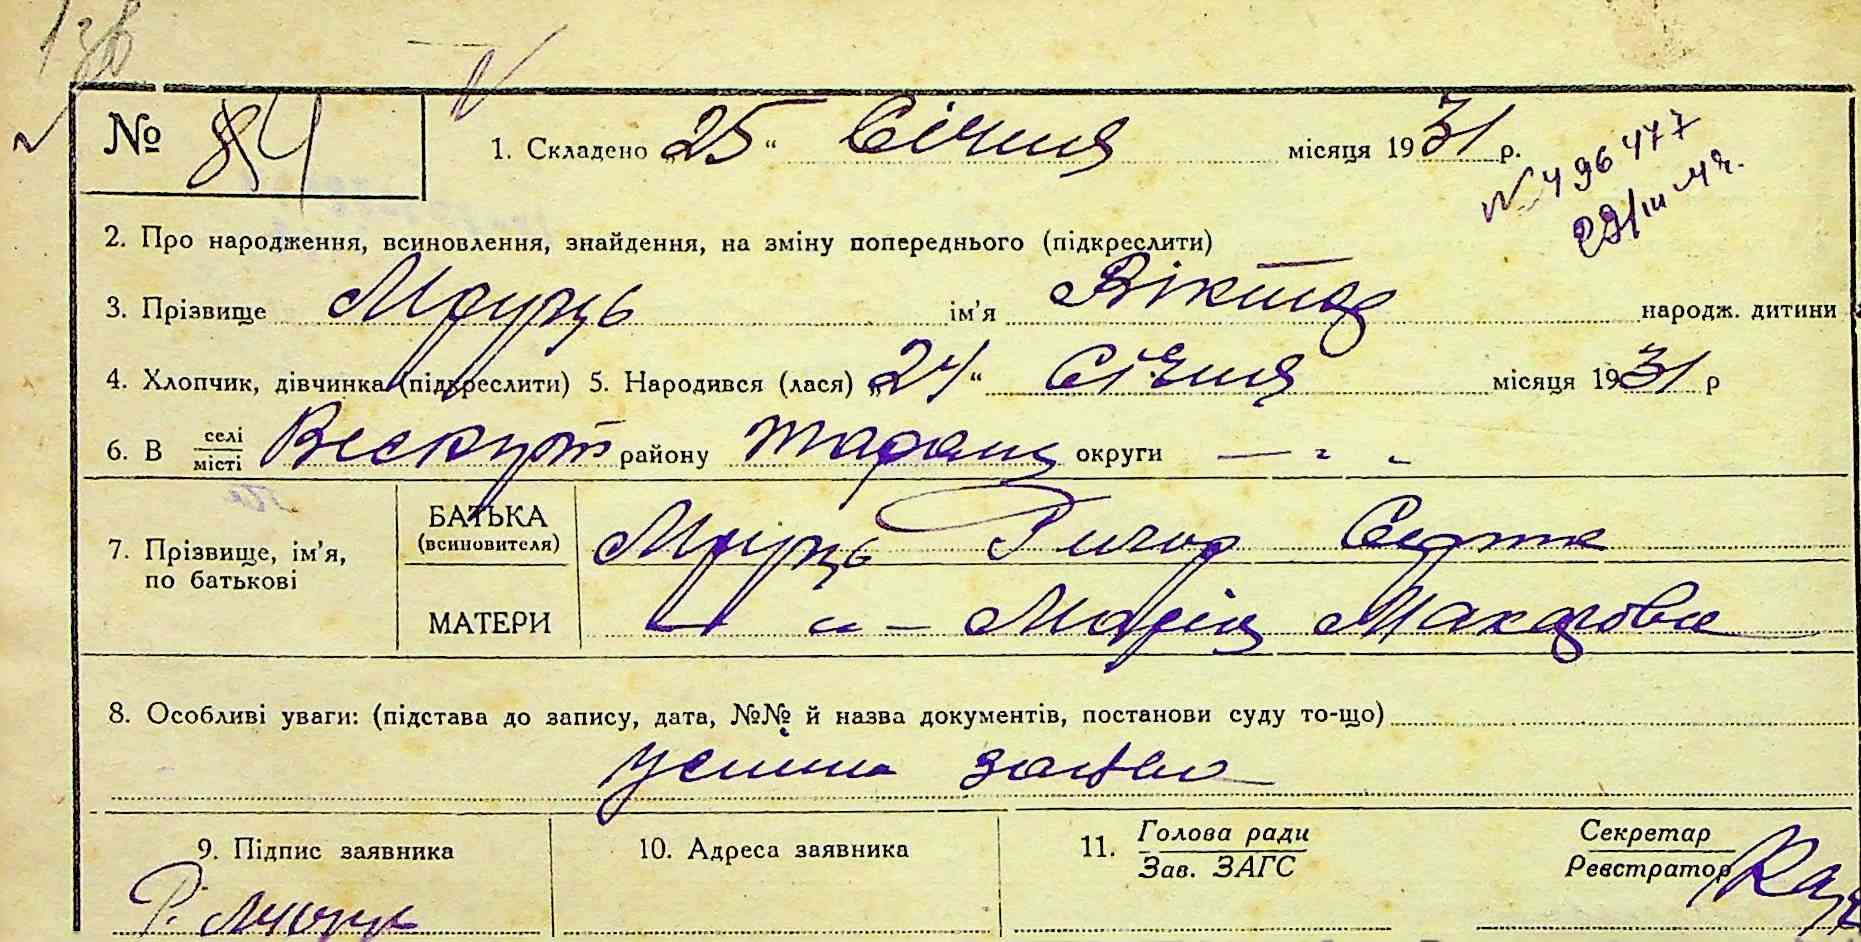 № 84 1. Складено „25“ Січня місяця 1931 р.
№ 496477
29/III
2. Про народження, всиновлення, знайдення, на зміну попереднього (підкреслити)
3. Прізвище ім'я Віктор народж. дитини
4. Хлопчик, дівчинка (підкреслити) 5. Народився (лася) „24“ Січня місяця 1931 р
6. В селі місті району Таращ округи — " "
7. Прізвище, ім'я, по батькові
БАТЬКА (всиновителя) Григор
МАТЕРИ — " — Марія Макаровна
8. Особливі уваги: (підстава до запису, дата, №№ й назва документів, постанови суду то-що)
усна заява
9. Підпис заявника 10. Адреса заявника 11. Голова ради Зав. ЗАГС Секретар Реєстратор